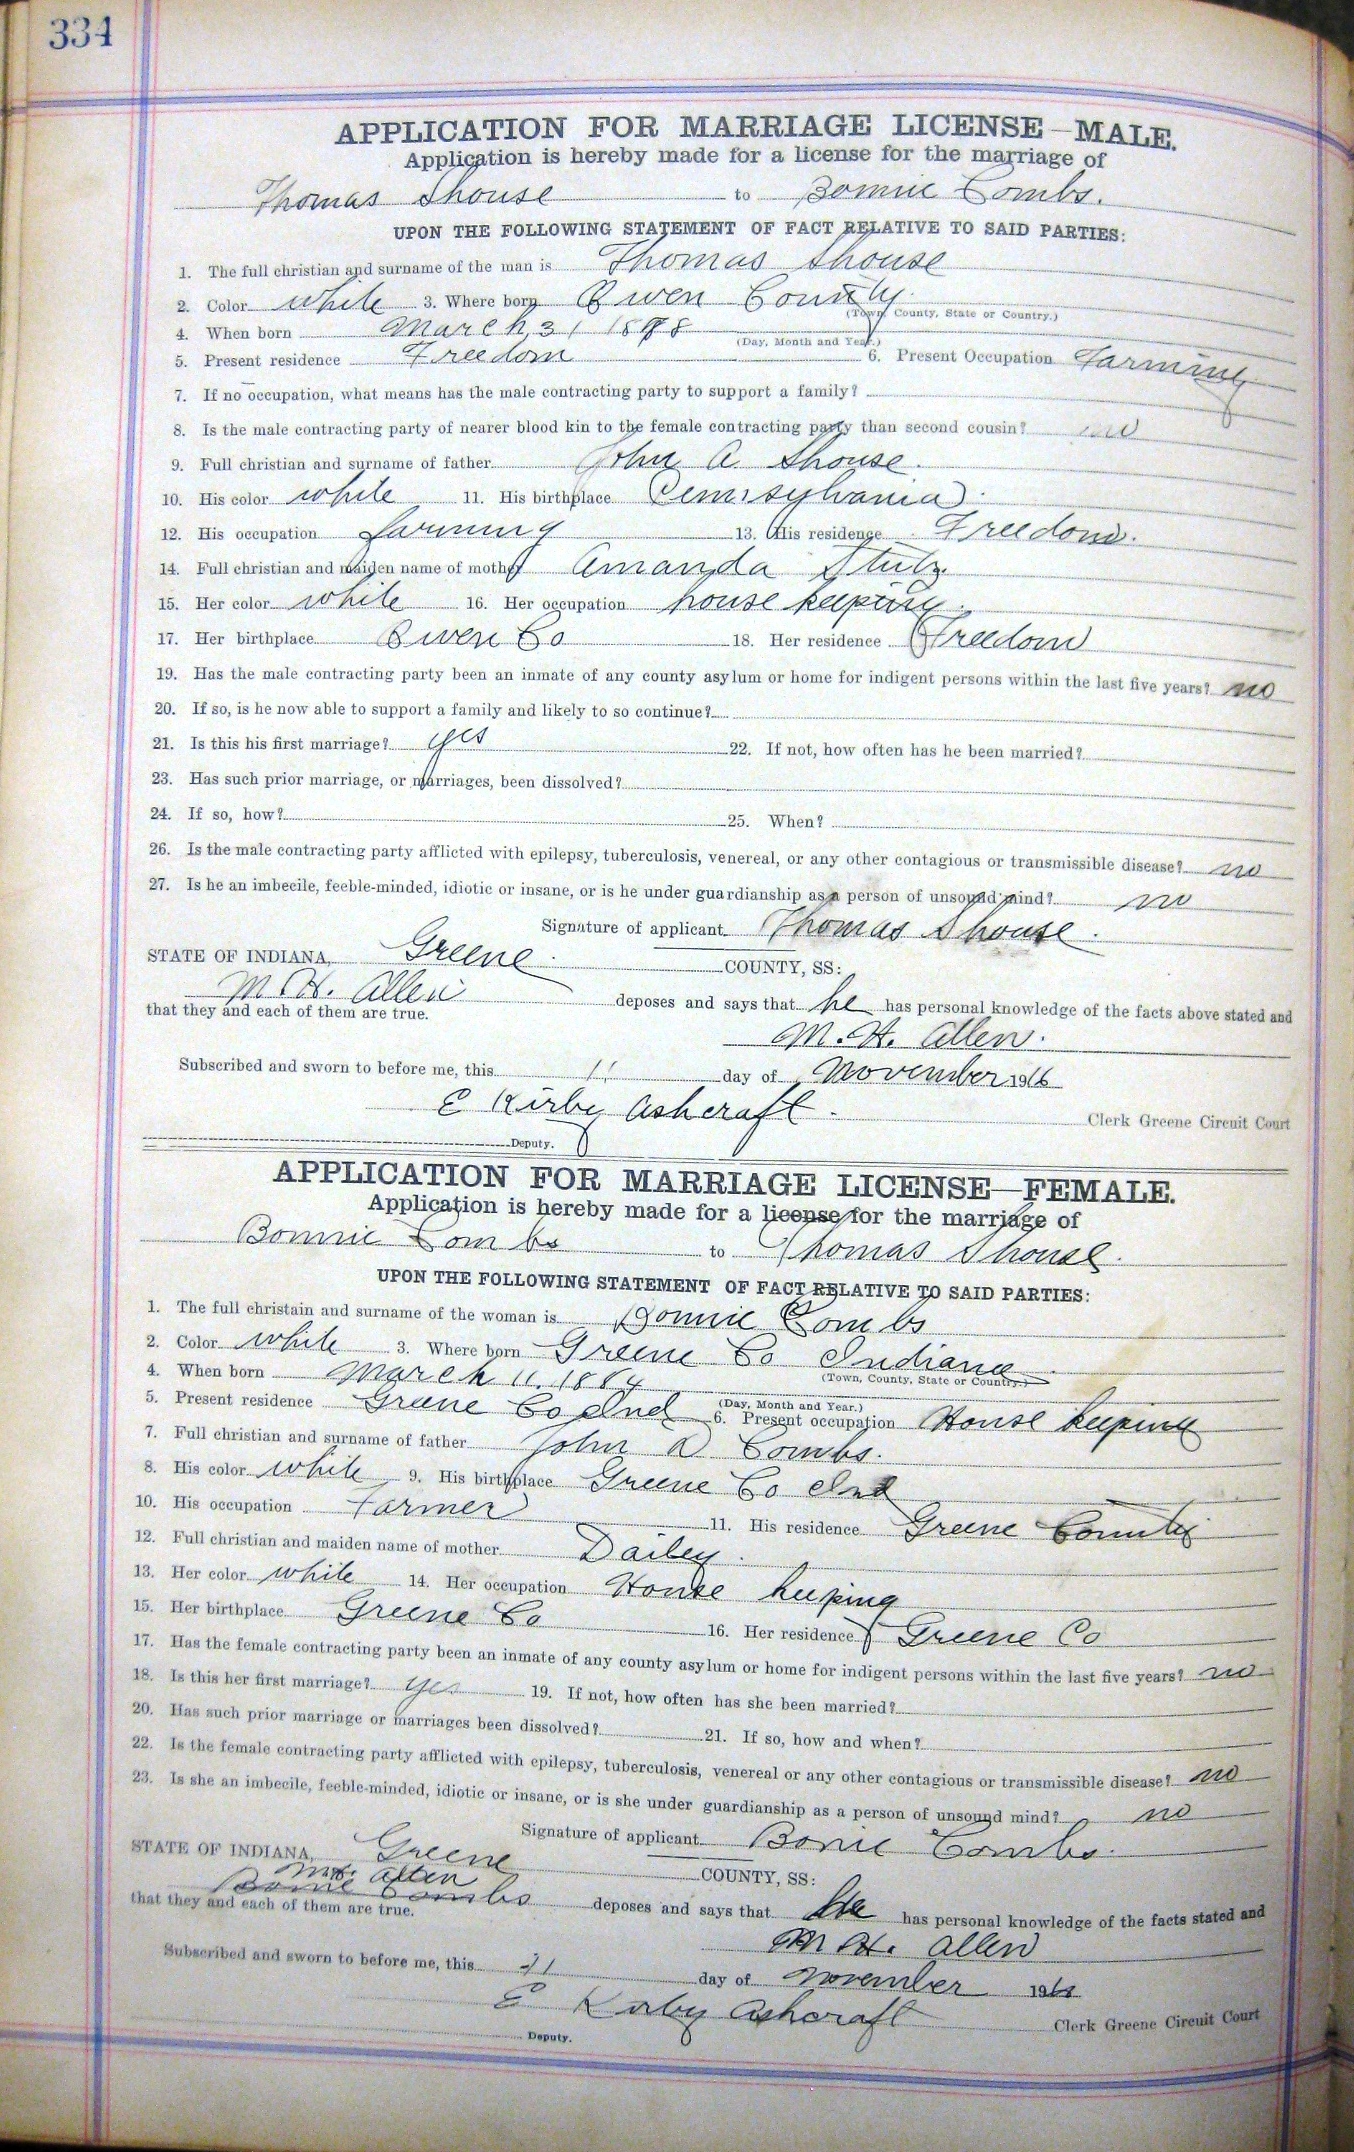 334
APPLICATION FOR MARRIAGE LICENSE—MALE.
Application is hereby made for a license for the marriage of
Thomas Shouse to Bonnie Combs.
UPON THE FOLLOWING STATEMENT OF FACT RELATIVE TO SAID PARTIES:
1. The full christian and surname of the man is Thomas Shouse
2. Color white 3. Where born Owen County
(Town, County, State or Country.)
4. When born March 31
(Day, Month and Year.)
5. Present residence Freedom 6. Present Occupation Farming
7. If no occupation, what means has the male contracting party to support a family?
8. Is the male contracting party of nearer blood kin to the female contracting party than second cousin? no
9. Full christian and surname of father John A Shouse.
10. His color white 11. His birthplace Pennsylvania
12. His occupation farming 13. His residence Freedom.
14. Full christian and maiden name of mother Amanda
15. Her color white 16. Her occupation house keeping.
17. Her birthplace Owen Co 18. Her residence Freedom
19. Has the male contracting party been an inmate of any county asylum or home for indigent persons within the last five years? no
20. If so, is he now able to support a family and likely to so continue?
21. Is this his first marriage? yes 22. If not, how often has he been married?
23. Has such prior marriage, or marriages, been dissolved?
24. If so, how? 25. When?
26. Is the male contracting party afflicted with epilepsy, tuberculosis, venereal, or any other contagious or transmissible disease? no
27. Is he an imbecile, feeble-minded, idiotic or insane, or is he under guardianship as a person of unsound mind? no
Signature of applicant Thomas Shouse.
STATE OF INDIANA, Greene COUNTY, SS:
M. H. Allen deposes and says that he has personal knowledge of the facts above stated and
that they and each of them are true.
M. H. Allen.
Subscribed and sworn to before me, this 11 day of November 1916
E Kirby Ashcraft. Clerk Greene Circuit Court
Deputy.
APPLICATION FOR MARRIAGE LICENSE—FEMALE.
Application is hereby made for a license for the marriage of
Bonnie Combs to Thomas Shouse.
UPON THE FOLLOWING STATEMENT OF FACT RELATIVE TO SAID PARTIES:
1. The full christain and surname of the woman is Bonnie Combs
2. Color white 3. Where born Greene Co Indiana
(Town, County, State or Country.)
4. When born March 11. 1884
(Day, Month and Year.)
5. Present residence Greene Co Ind 6. Present occupation House keeping
7. Full christian and surname of father John Combs.
8. His color white 9. His birthplace Greene Co Ind
10. His occupation Farmer 11. His residence Greene County
12. Full christian and maiden name of mother Dailey.
13. Her color white 14. Her occupation House keeping
15. Her birthplace Greene Co 16. Her residence Greene Co
17. Has the female contracting party been an inmate of any county asylum or home for indigent persons within the last five years? no
18. Is this her first marriage? yes 19. If not, how often has she been married?
20. Has such prior marriage or marriages been dissolved? 21. If so, how and when?
22. Is the female contracting party afflicted with epilepsy, tuberculosis, venereal or any other contagious or transmissible disease? no
23. Is she an imbecile, feeble-minded, idiotic or insane, or is she under guardianship as a person of unsound mind? no
Signature of applicant Bonie Combs.
STATE OF INDIANA, Greene COUNTY, SS:
M. H. Allen
Bonnie Combs deposes and says that he has personal knowledge of the facts stated and
that they and each of them are true.
M. H. Allen
Subscribed and sworn to before me, this 11 day of November 1916
E Kirby Ashcraft Clerk Greene Circuit Court
Deputy.